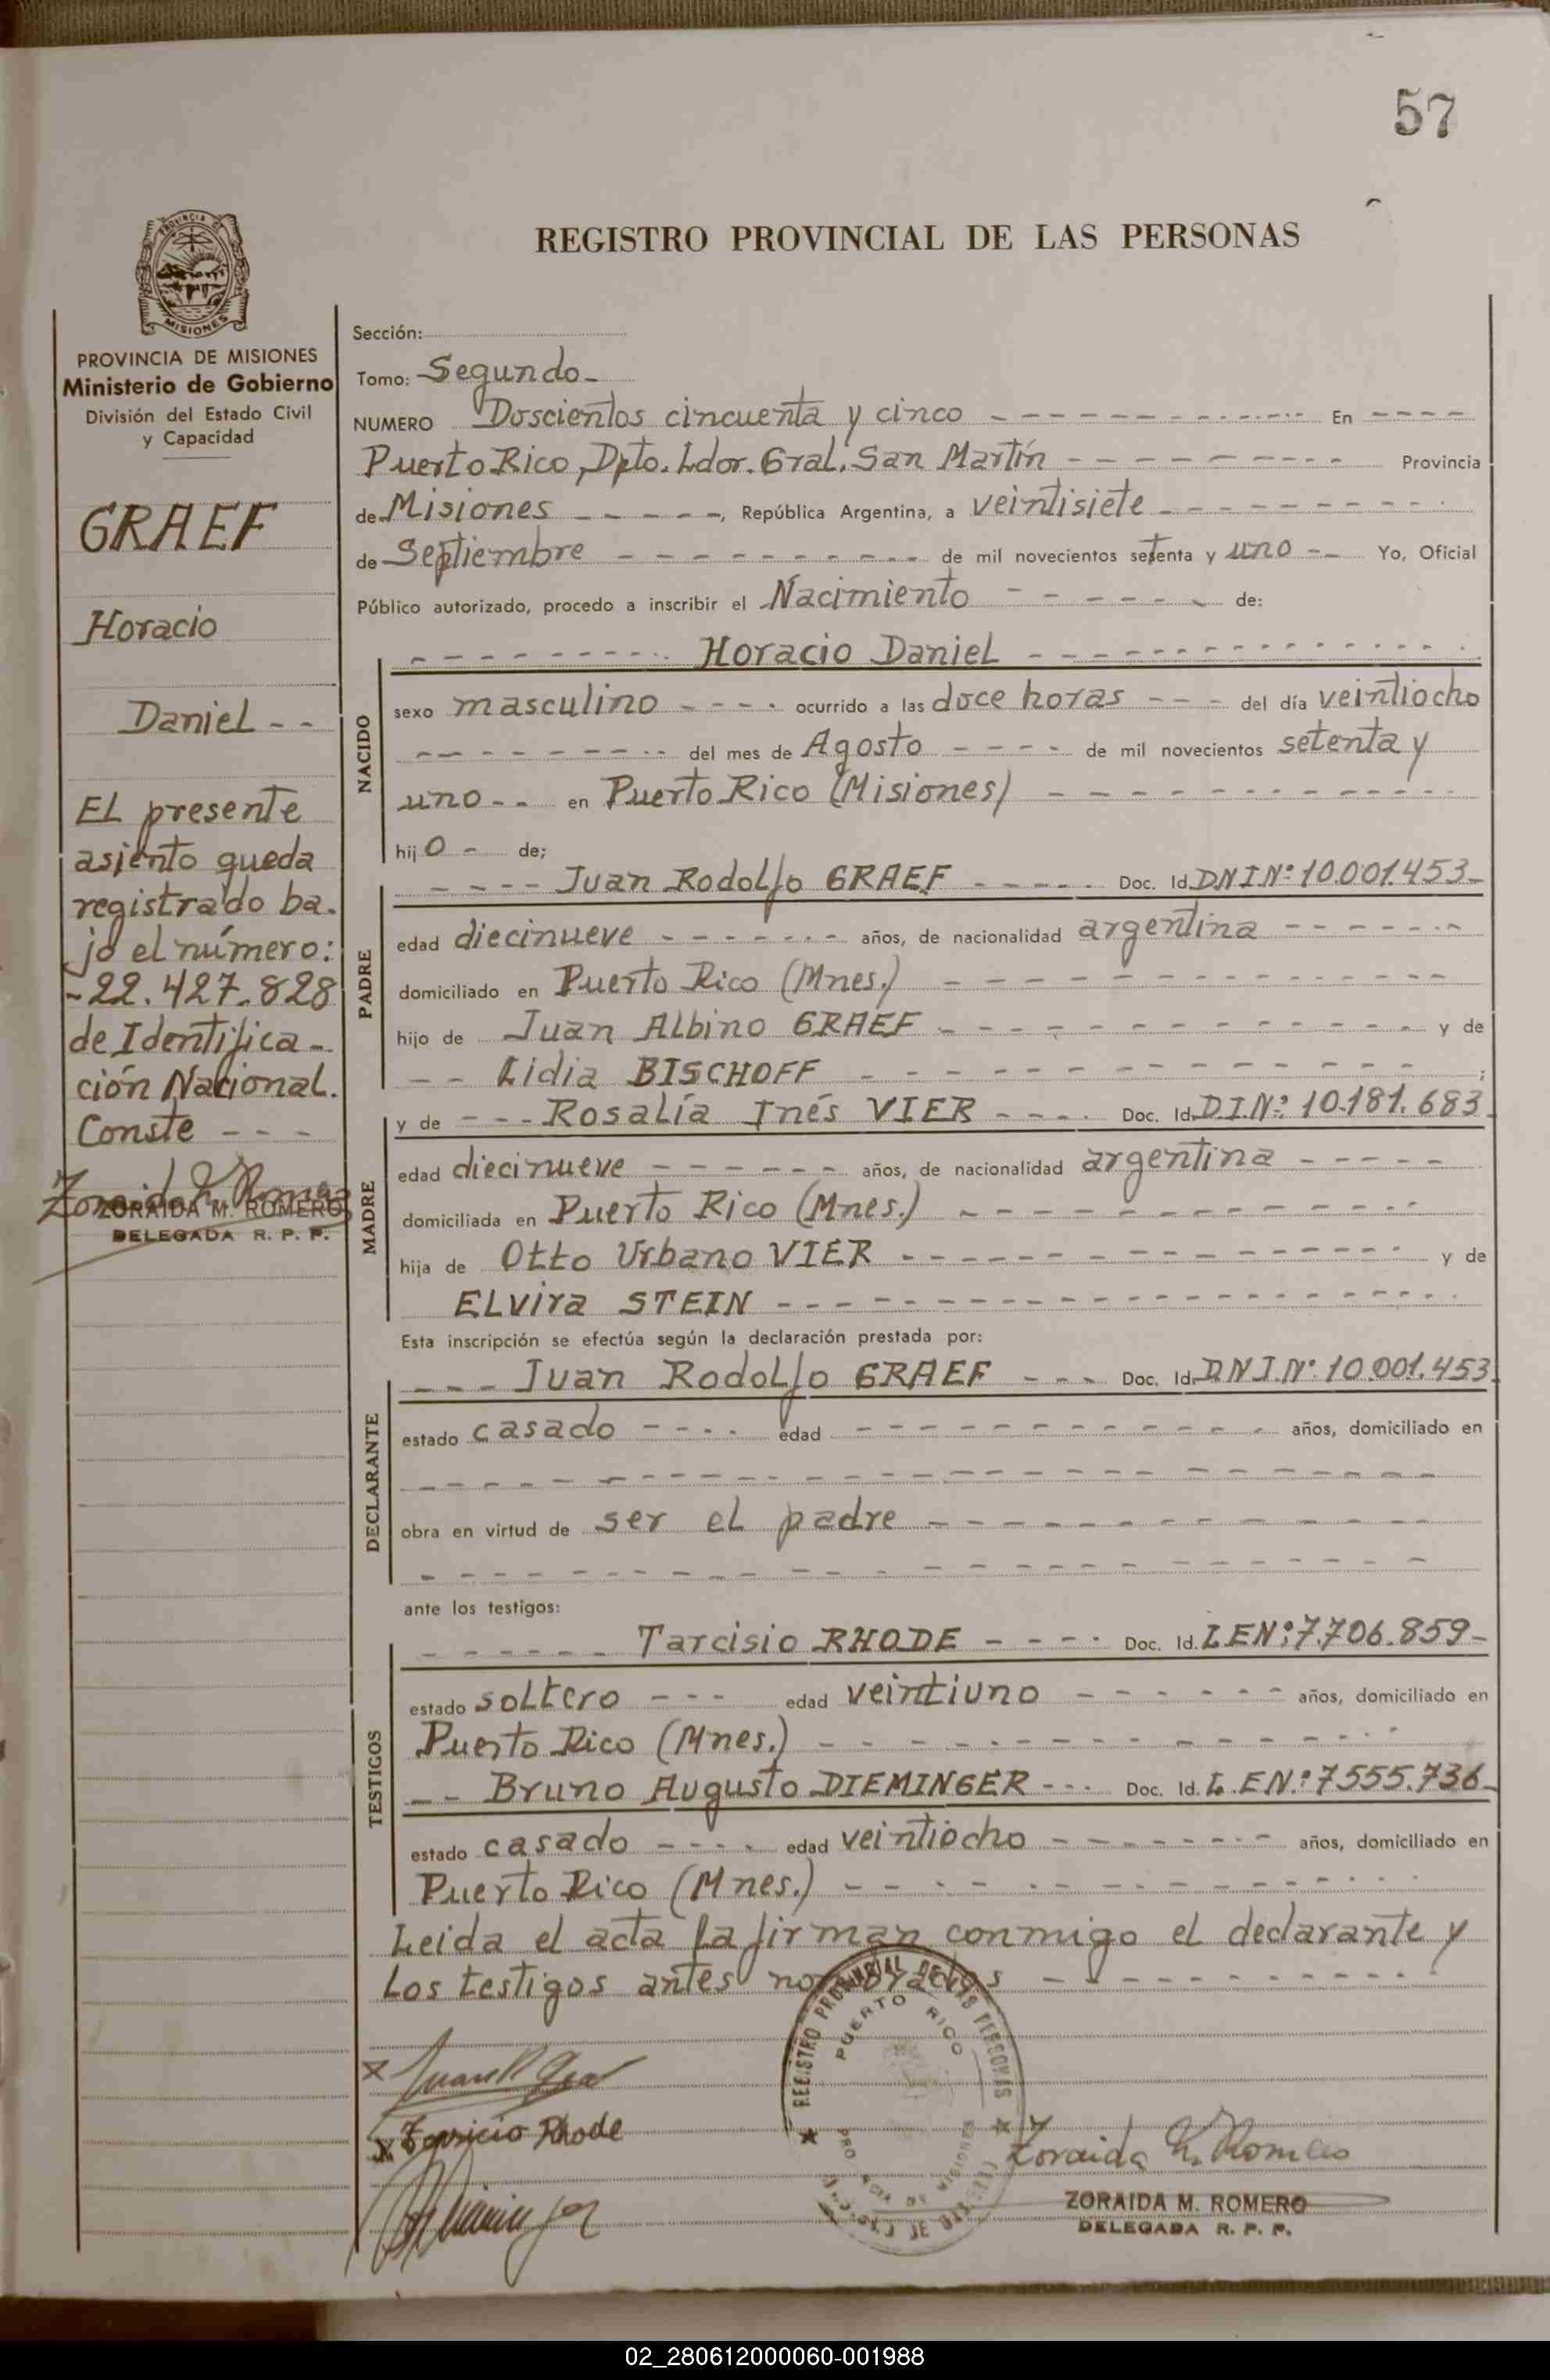 57
REGISTRO PROVINCIAL DE LAS PERSONAS
PROVINCIA DE
MISIONES
PROVINCIA DE MISIONES
Ministerio de Gobierno
División del Estado Civil
y Capacidad
GRAEF
Horacio
Daniel - -
EL presente
asiento queda
registrado ba-
jo el número:
-22.427.828
de Identifica-
ción Nacional.
Conste - - -
ZORAIDA M. ROMERO
DELEGADA R. P. P.
Sección:
Tomo: Segundo-
NUMERO Doscientos cincuenta y cinco - - - - En - - - -
Puerto Rico, Dpto. Ldor. Gral. San Martín - - - - Provincia
de Misiones - - - - -, República Argentina, a veintisiete - - - -
de Septiembre - - - - de mil novecientos setenta y uno - - Yo, Oficial
Público autorizado, procedo a inscribir el Nacimiento - - - - de:
NACIDO
- - - - Horacio Daniel - - - -
sexo masculino - - - - ocurrido a las doce horas - - - del día veintiocho
- - - - del mes de Agosto - - - - de mil novecientos setenta y
uno - - en Puerto Rico (Misiones) - - - -
hijo - de;
PADRE
- - - - Juan Rodolfo GRAEF - - - - Doc. Id. DNIN° 10.001.453-
edad diecinueve - - - - años, de nacionalidad argentina - - - -
domiciliado en Puerto Rico (Mnes.) - - - -
hijo de Juan Albino GRAEF - - - - y de
- - Lidia BISCHOFF - - - - ;
MADRE
y de - - - Rosalía Inés VIER - - - - Doc. Id. D.I.N° 10.181.683
edad diecinueve - - - - años, de nacionalidad argentina - - - -
domiciliada en Puerto Rico (Mnes.) - - - -
hija de Otto Urbano VIER - - - - y de
ELvira STEIN - - - -
Esta inscripción se efectúa según la declaración prestada por:
DECLARANTE
- - - Juan Rodolfo GRAEF - - - Doc. Id. D.N.I.N° 10.001.453
estado casado - - - - edad - - - - años, domiciliado en
- - - -
obra en virtud de ser el padre - - - -
- - - -
ante los testigos:
TESTIGOS
- - - - Tarcisio RHODE - - - - Doc. Id. LEN° 7.706.859-
estado soltero - - - edad veintiuno - - - - años, domiciliado en
Puerto Rico (Mnes.) - - - -
- - Bruno Augusto DIEMINGER - - - Doc. Id. L.EN.° 7555.736-
estado casado - - - - edad veintiocho - - - - años, domiciliado en
Puerto Rico (Mnes.) - - - -
Leida el acta la firman conmigo el declarante y
los testigos antes nombrados - - - -
REGISTRO PROVINCIAL DE LAS PERSONAS
PUERTO RICO
DE MISIONES
Rhode
Zoraida
ZORAIDA M. ROMERO
DELEGADA R. P. P.
02_280612000060-001988